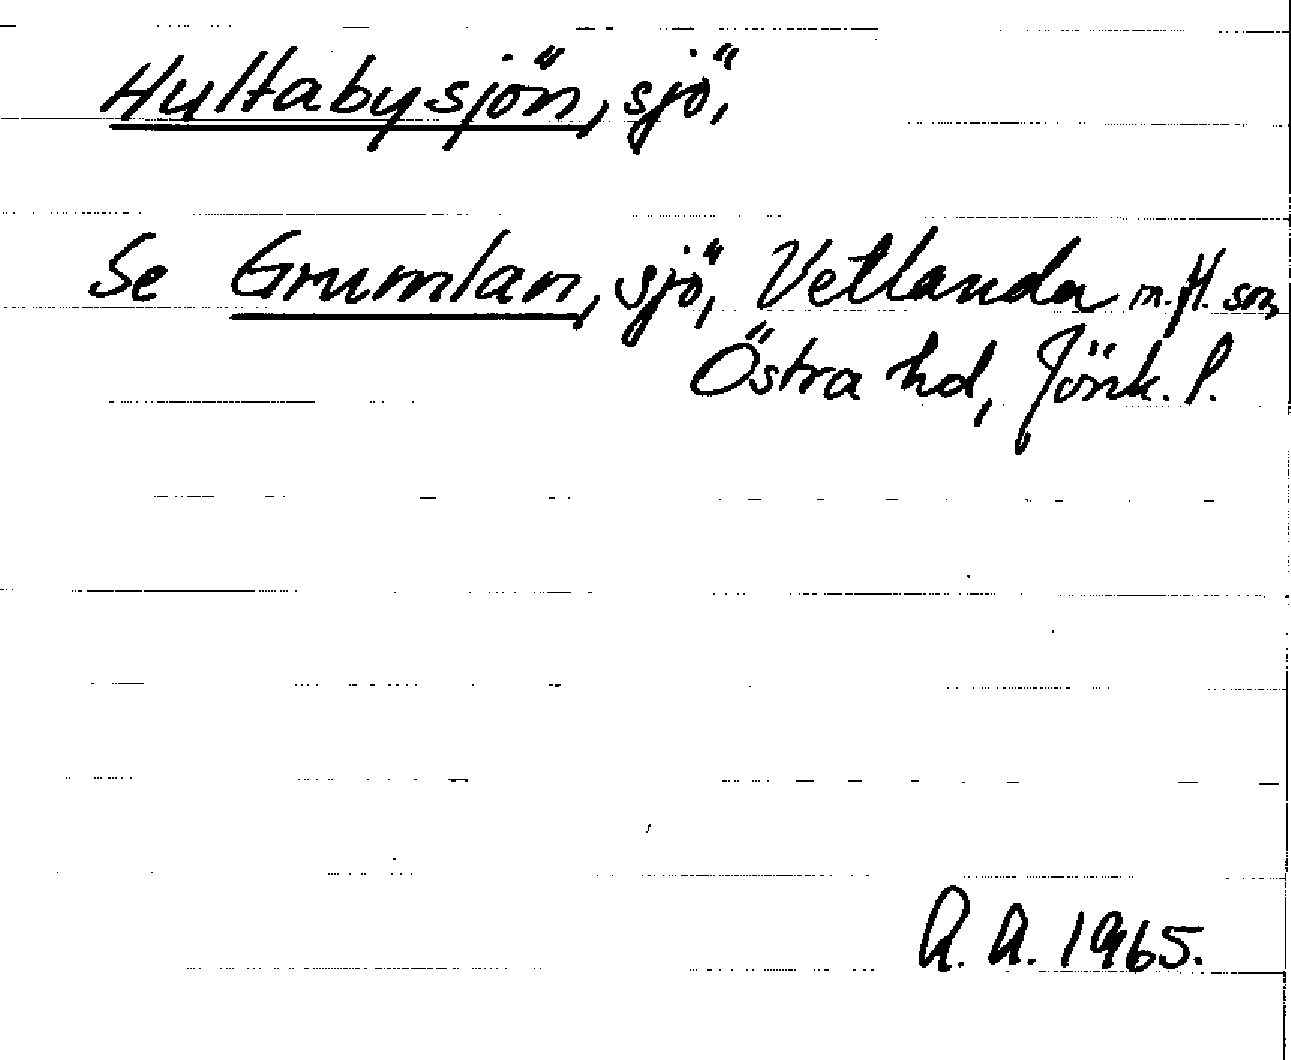 Hultabysjön, sjö,
Se Grumlan, sjö, Vetlanda m.fl. snr,
Östra hd, Jönk. l.
A. A. 1965.